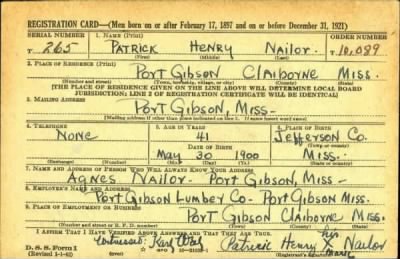 REGISTRATION CARD—(Men born on or after February 17, 1897 and on or before December 31, 1921)
SERIAL NUMBER 1. NAME (Print) ORDER NUMBER
T 265 PATRICK HENRY NAILOR T 10,099
(First) (Middle) (Last)
2. PLACE OF RESIDENCE (Print)
PORT GIBSON CLAIBORNE MISS.
(Number and street) (Town, township, village, or city) (County) (State)
[THE PLACE OF RESIDENCE GIVEN ON THE LINE ABOVE WILL DETERMINE LOCAL BOARD
JURISDICTION; LINE 2 OF REGISTRATION CERTIFICATE WILL BE IDENTICAL]
3. MAILING ADDRESS
PORT GIBSON, MISS—
[Mailing address if other than place indicated on line 2. If same insert word same]
4. TELEPHONE 5. AGE IN YEARS 6. PLACE OF BIRTH
NONE 41 Jefferson Co.
DATE OF BIRTH (Town or county)
MAY 30 1900 MISS—
(Exchange) (Number) (Mo.) (Day) (Yr.) (State or country)
7. NAME AND ADDRESS OF PERSON WHO WILL ALWAYS KNOW YOUR ADDRESS
AGNES NAILOR- PORT GIBSON, MISS—
8. EMPLOYER'S NAME AND ADDRESS
PORT GIBSON LUMBER CO- PORT GIBSON MISS.
9. PLACE OF EMPLOYMENT OR BUSINESS
PORT GIBSON CLAIBORNE MISS.
(Number and street or R. F. D. number) (Town) (County) (State)
I AFFIRM THAT I HAVE VERIFIED ABOVE ANSWERS AND THAT THEY ARE TRUE.
Witnessed: his
Patrick Henry X Nailor
mark
D. S. S. Form 1
(Revised 1-1-42) (Registrant's signature)